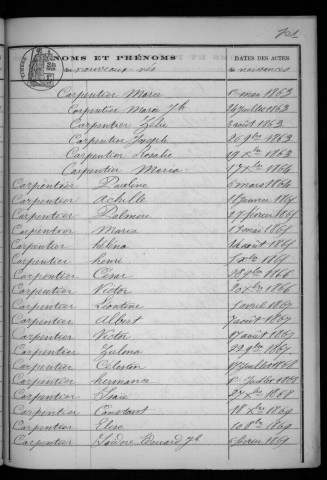 NOMS ET PRÉNOMS DATES DES ACTES
des nouveaux nés de naissances
Carpentier Marie 1er mai 1863
Carpentier Marie Jh 24 juillet 1863
Carpentier Zélie 3 août 1863
Carpentier Joseph 26 9bre 1863
Carpentier Rosalie 19 Xbre 1863
Carpentier Maria 17 Xbre 1864
Carpentier Pauline 6 mars 1864
Carpentier Achille 18 janvier 1865
Carpentier Palmire 27 février 1865
Carpentier Maria mai 1865
Carpentier héléna 14 août 1865
Carpentier henri Xbre 1865
Carpentier César 18 9bre 1866
Carpentier Victor 20 Xbre 1866
Carpentier Léontine 1 avril 1867
Carpentier Albert 7 août 1867
Carpentier Victor 17 août 1867
Carpentier Zulma 22 9bre 1867
Carpentier Célestin 17 juillet 1868
Carpentier hermance juillet 1868
Carpentier Elsaïe 27 Xbre 1868
Carpentier Constant 18 Xbre 1869
Carpentier Elise 10 8bre 1869
Carpentier Isidore Edouard Jh février 1869